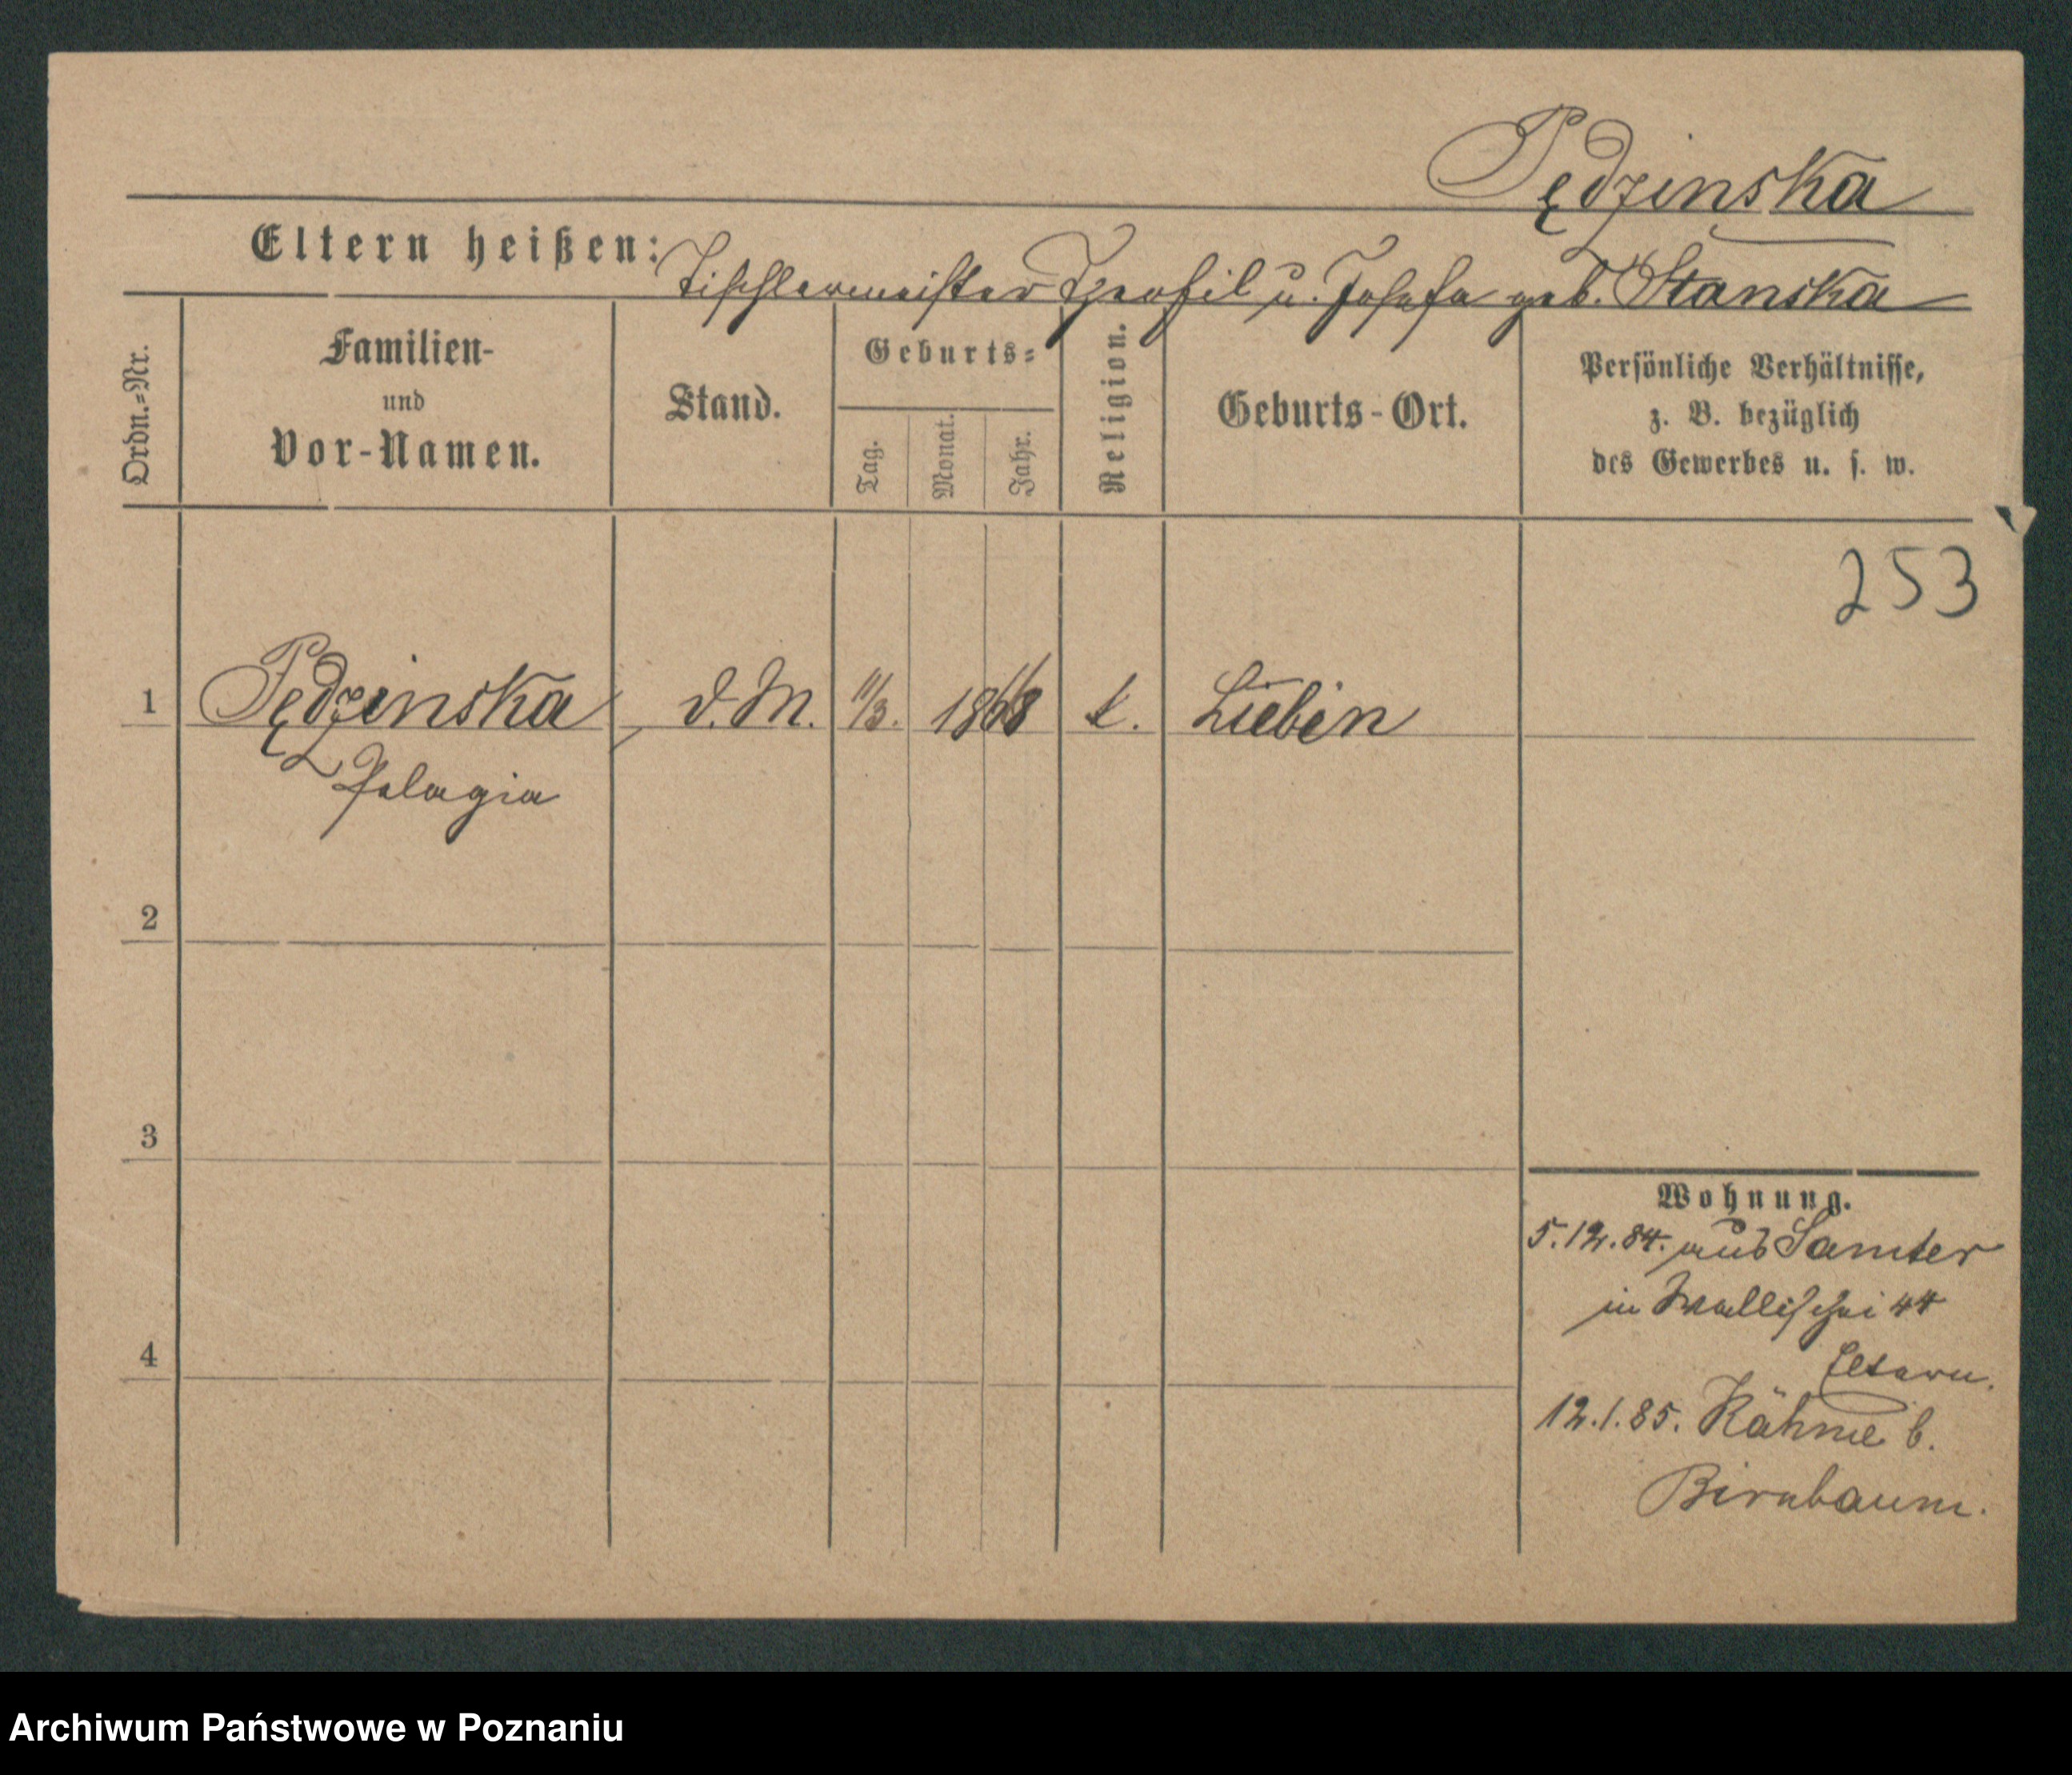 Pędzinska
Eltern heißen: Tischlermeister Theofil u. Josefa geb. Stanska
Ordn.=Nr.
Familien-
und
Vor-Namen.
Stand.
Geburts=
Tag.
Monat.
Jahr.
Religion.
Geburts-Ort.
Persönliche Verhältnisse,
z. B. bezüglich
des Gewerbes u. s. w.
253
1 Pędzinska, d. M. 11/3. 1868 k. Lubin
Pelagia
2
3
Wohnung.
5.12.84. aus Samter
in Wallischei 44
4
Eltern.
12.1.85. Kähme b.
Birnbaum.
Archiwum Państwowe w Poznaniu